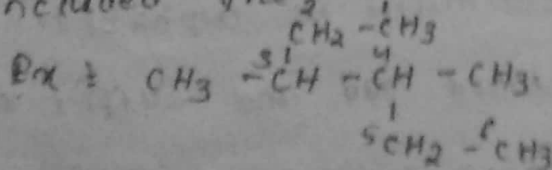 ²CH₂ - ¹CH₃
Ex : CH₃ - ³CH - ⁴CH - CH₃
⁵CH₂ - ⁶CH₃